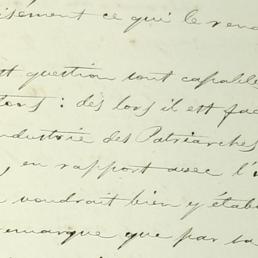 isément ce qui le rend
question sont capable
tons : dès lors il est fac
ndustrie des Patriarches
, en rapport avec l'i
voudrait bien y établ
remarque que par sa